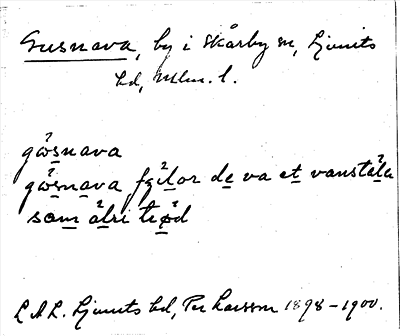 Gusnava, by i Skårby sn, Ljunits
hd, Mlm. l.
gωsnava
gωsnava, fǫilor de va et vanstäla
som aldri teød
L.A.L. Ljunits hd, Per Larsson 1898–1900.